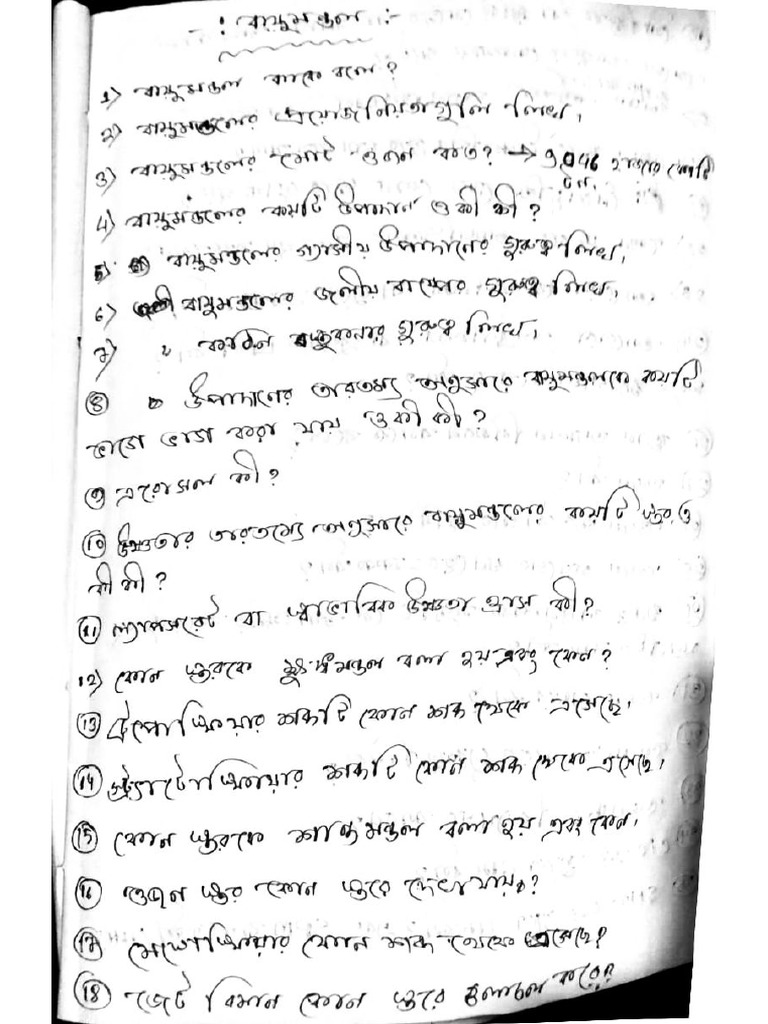 -: বায়ুমন্ডল :-
1) বায়ুমন্ডল কাকে বলে?
2) বায়ুমন্ডলের প্রয়োজনিয়তাগুলি লিখ,
3) বায়ুমন্ডলের মোট ওজন কত? →
হাজার কোটি
টন.
4) বায়ুমন্ডলের কয়টি উপাদান ও কী কী?
5 বায়ুমন্ডলের গ্যাসীয় উপাদানের গুরুত্ব লিখ,
6) বায়ুমন্ডলের জলীয় বাষ্পের গুরুত্ব লিখ,
7) " কঠিন বস্তুকনার গুরুত্ব লিখ,
8 উপাদানের তারতম্য অনুসারে বায়ুমন্ডলকে কয়টি
ভাগে ভাগ করা যায় ও কী কী?
9 এরোসল কী?
10 উষ্ণতার তারতম্যে অনুসারে বায়ুমন্ডলের কয়টি স্তর ও
কী কী?
11 ল্যাপসরেট বা স্বাভাবিক উষ্ণতা হ্রাস কী?
12) কোন স্তরকে ক্ষুব্ধমন্ডল বলা হয় এবং কেন?
13 ট্রপোস্ফিয়ার শব্দটি কোন শব্দ থেকে এসেছে,
14 স্ট্র্যাটোস্ফিয়ার শব্দটি কোন শব্দ থেকে এসেছে,
15 কোন স্তরকে শান্তমন্ডল বলা হয় এবং কেন,
16 ওজন স্তর কোন স্তরে দেখা যায়?
17 মেসোস্ফিয়ার কোন শব্দ থেকে এসেছে?
18 জেট বিমান কোন স্তরে চলাচল করে?